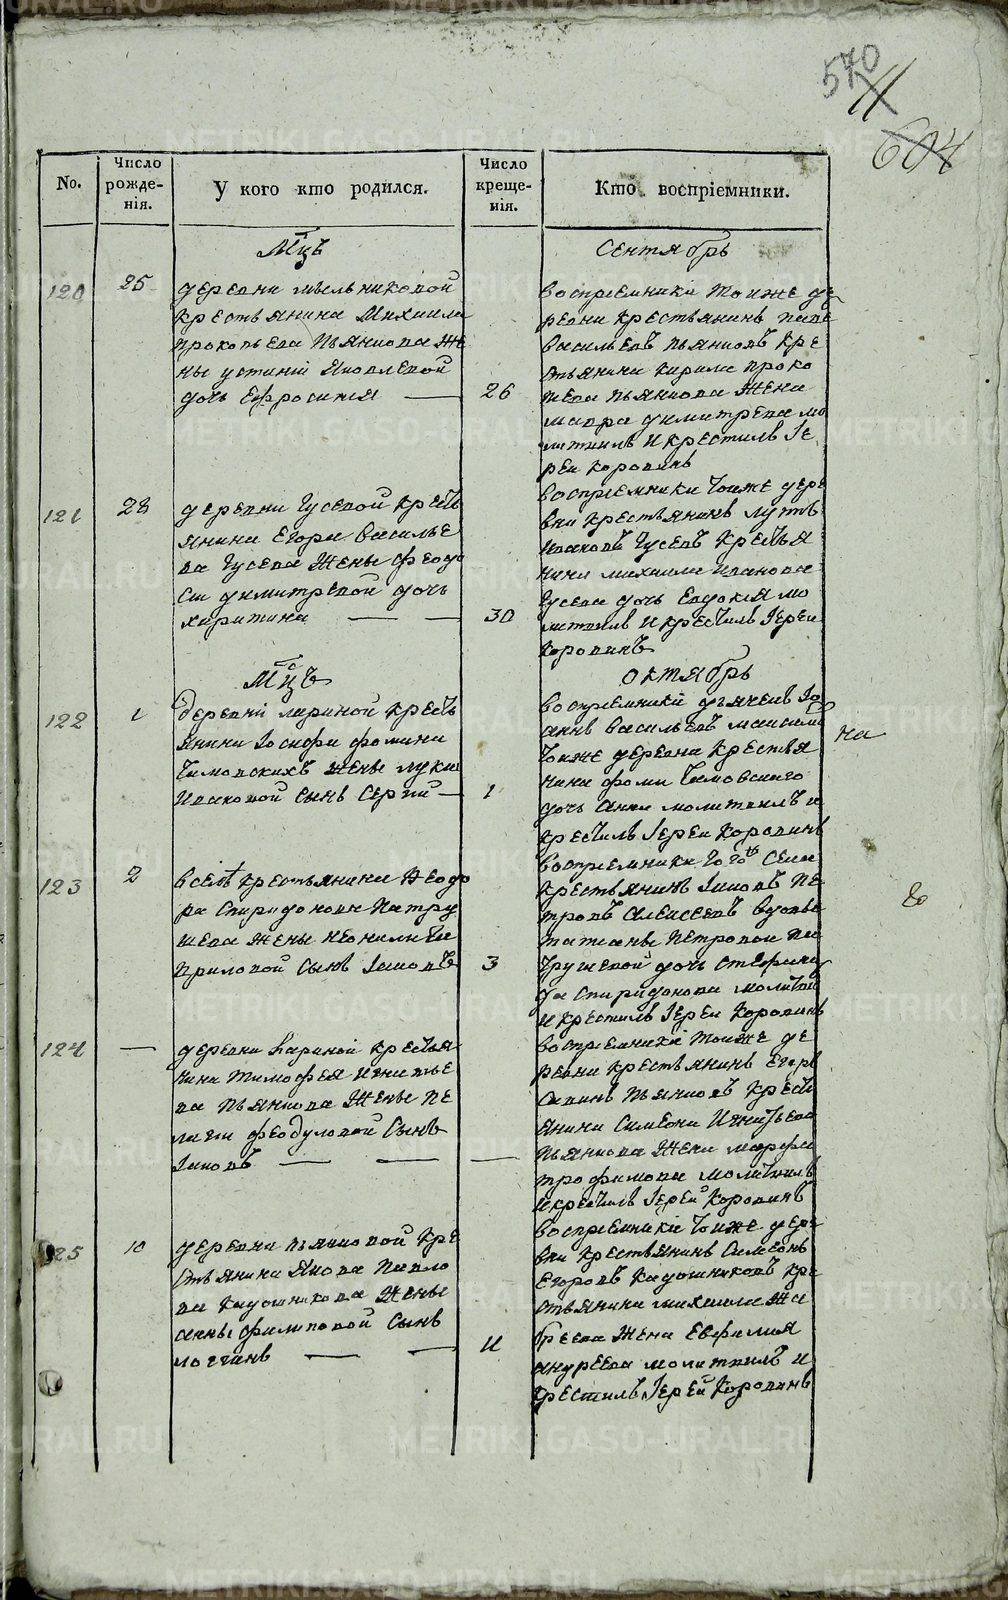 570
11
604
No.
Число рожде-нія.
У кого кто родился.
Число креще-нія.
Кто воспріемники.
Мцъ
Сентябрь
120
25
деревни мельниковой
крестьянина Михаила
прокопьева пьянкова же
ны устиніи Яковлевой
дочь Ефросинія
26
воспріемники тоиже де
ревни крестьянинъ
васильевъ пьянковъ кре
стьянина кирила проко
пьева пьянкова жена
мавра димитрева мо
литвилъ и крестилъ Іе
рей коровинъ
121
28
деревни Гусевой кресть
янина Егора василье
ва Гусева жены феодо
сіи димитревой дочь
харитина
30
воспріемники тоиже дере
вни крестьянинъ
ивановъ Гусевъ крестья
нина михаила иванова
Гусева дочь Евдокія мо
литвилъ и крестилъ Іерей
коровинъ
Мцъ
октябрь
122
1
деревни лариной кресть
янина Іосифа фомина
жены лукіи
ивановой сынъ Сергій
1
воспріемники дьячекъ Іо
аннъ васильевъ
тоиже деревни крестья
нина фомы
дочь анна молитвилъ и
крестилъ Іерей коровинъ
на
123
2
в селѣ крестьянина Феодо
ра Спиридонова патру
шева жены неонилы
сынъ Іаковъ
3
воспріемники того Села
крестьянинъ Іаковъ пе
тровъ алексеевъ вдовы
татьяны петровой па
трушевой дочь Стефани
да Спиридонова молитвил
и крестилъ Іерей коровинъ
124
деревни лариной крестья
нина тимофея игнатье
ва пьянкова жены пе
лагіи феодуловой сынъ
Іаковъ
воспріемники тоиже де
ревни крестьянинъ Егоръ
Савинъ пьянковъ кресть
янина Симеона игнатьева
пьянкова жена марфа
трофимова молитвилъ
и крестилъ Іерей коровинъ
125
10
деревни пьянковой кре
стьянина Якова павло
ва кадошникова жены
анны филиповой сынъ
логгинъ
11
воспріемники тоиже дере
вни крестьянинъ Симеонъ
Егоровъ кадошниковъ кре
стьянина михаила
жена Евфимія
андреева молитвилъ и
крестилъ Іерей коровинъ